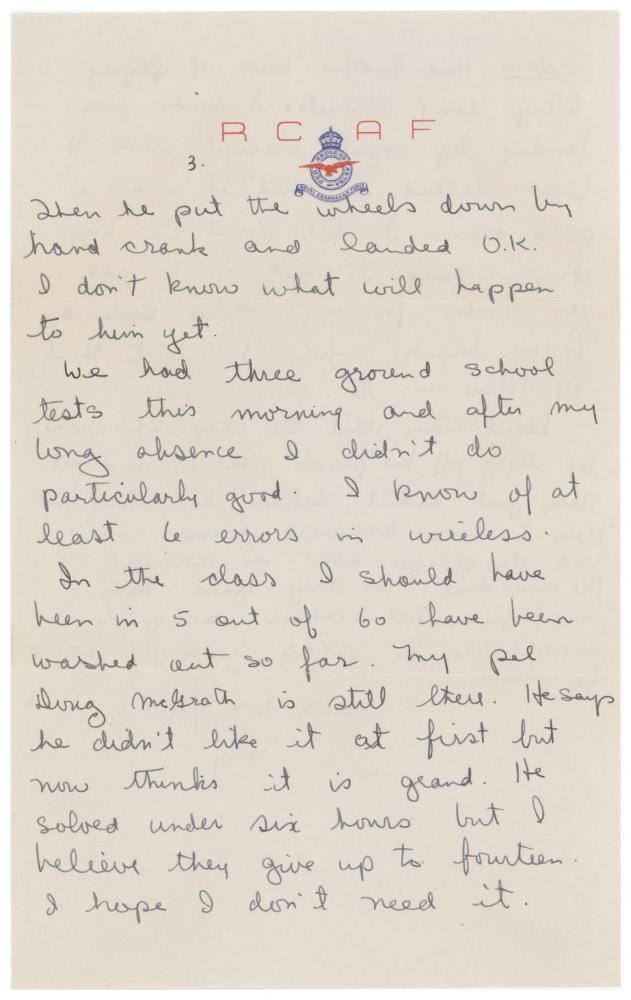 R C A F
3.
PER ARDUA AD ASTRA
ROYAL CANADIAN AIR FORCE
Then he put the wheels down by
hand crank and landed O.K.
I don't know what will happen
to him yet.
We had three ground school
tests this morning and after my
long absence I didn't do
particularly good. I know of at
least 6 errors in wireless.
In the class I should have
been in 5 out of 60 have been
washed out so far. My pal
Doug McGrath is still there. He says
he didn't like it at first but
now thinks it is grand. He
soloed under six hours but I
believe they give up to fourteen.
I hope I don't need it.